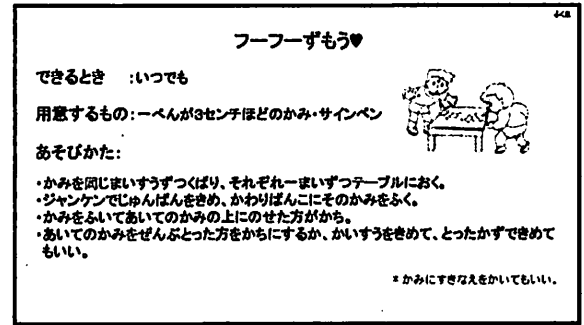 フーフーずもう♥
できるとき :いつでも
用意するもの:一ぺんが3センチほどのかみ・サインペン
あそびかた:
・かみを同じまいすうずつくばり、それぞれ一まいずつテーブルにおく。
・ジャンケンでじゅんばんをきめ、かわりばんこにそのかみをふく。
・かみをふいてあいてのかみの上にのせた方がかち。
・あいてのかみをぜんぶとった方をかちにするか、かいすうをきめて、とったかずできめて
もいい。
* かみにすきなえをかいてもいい。